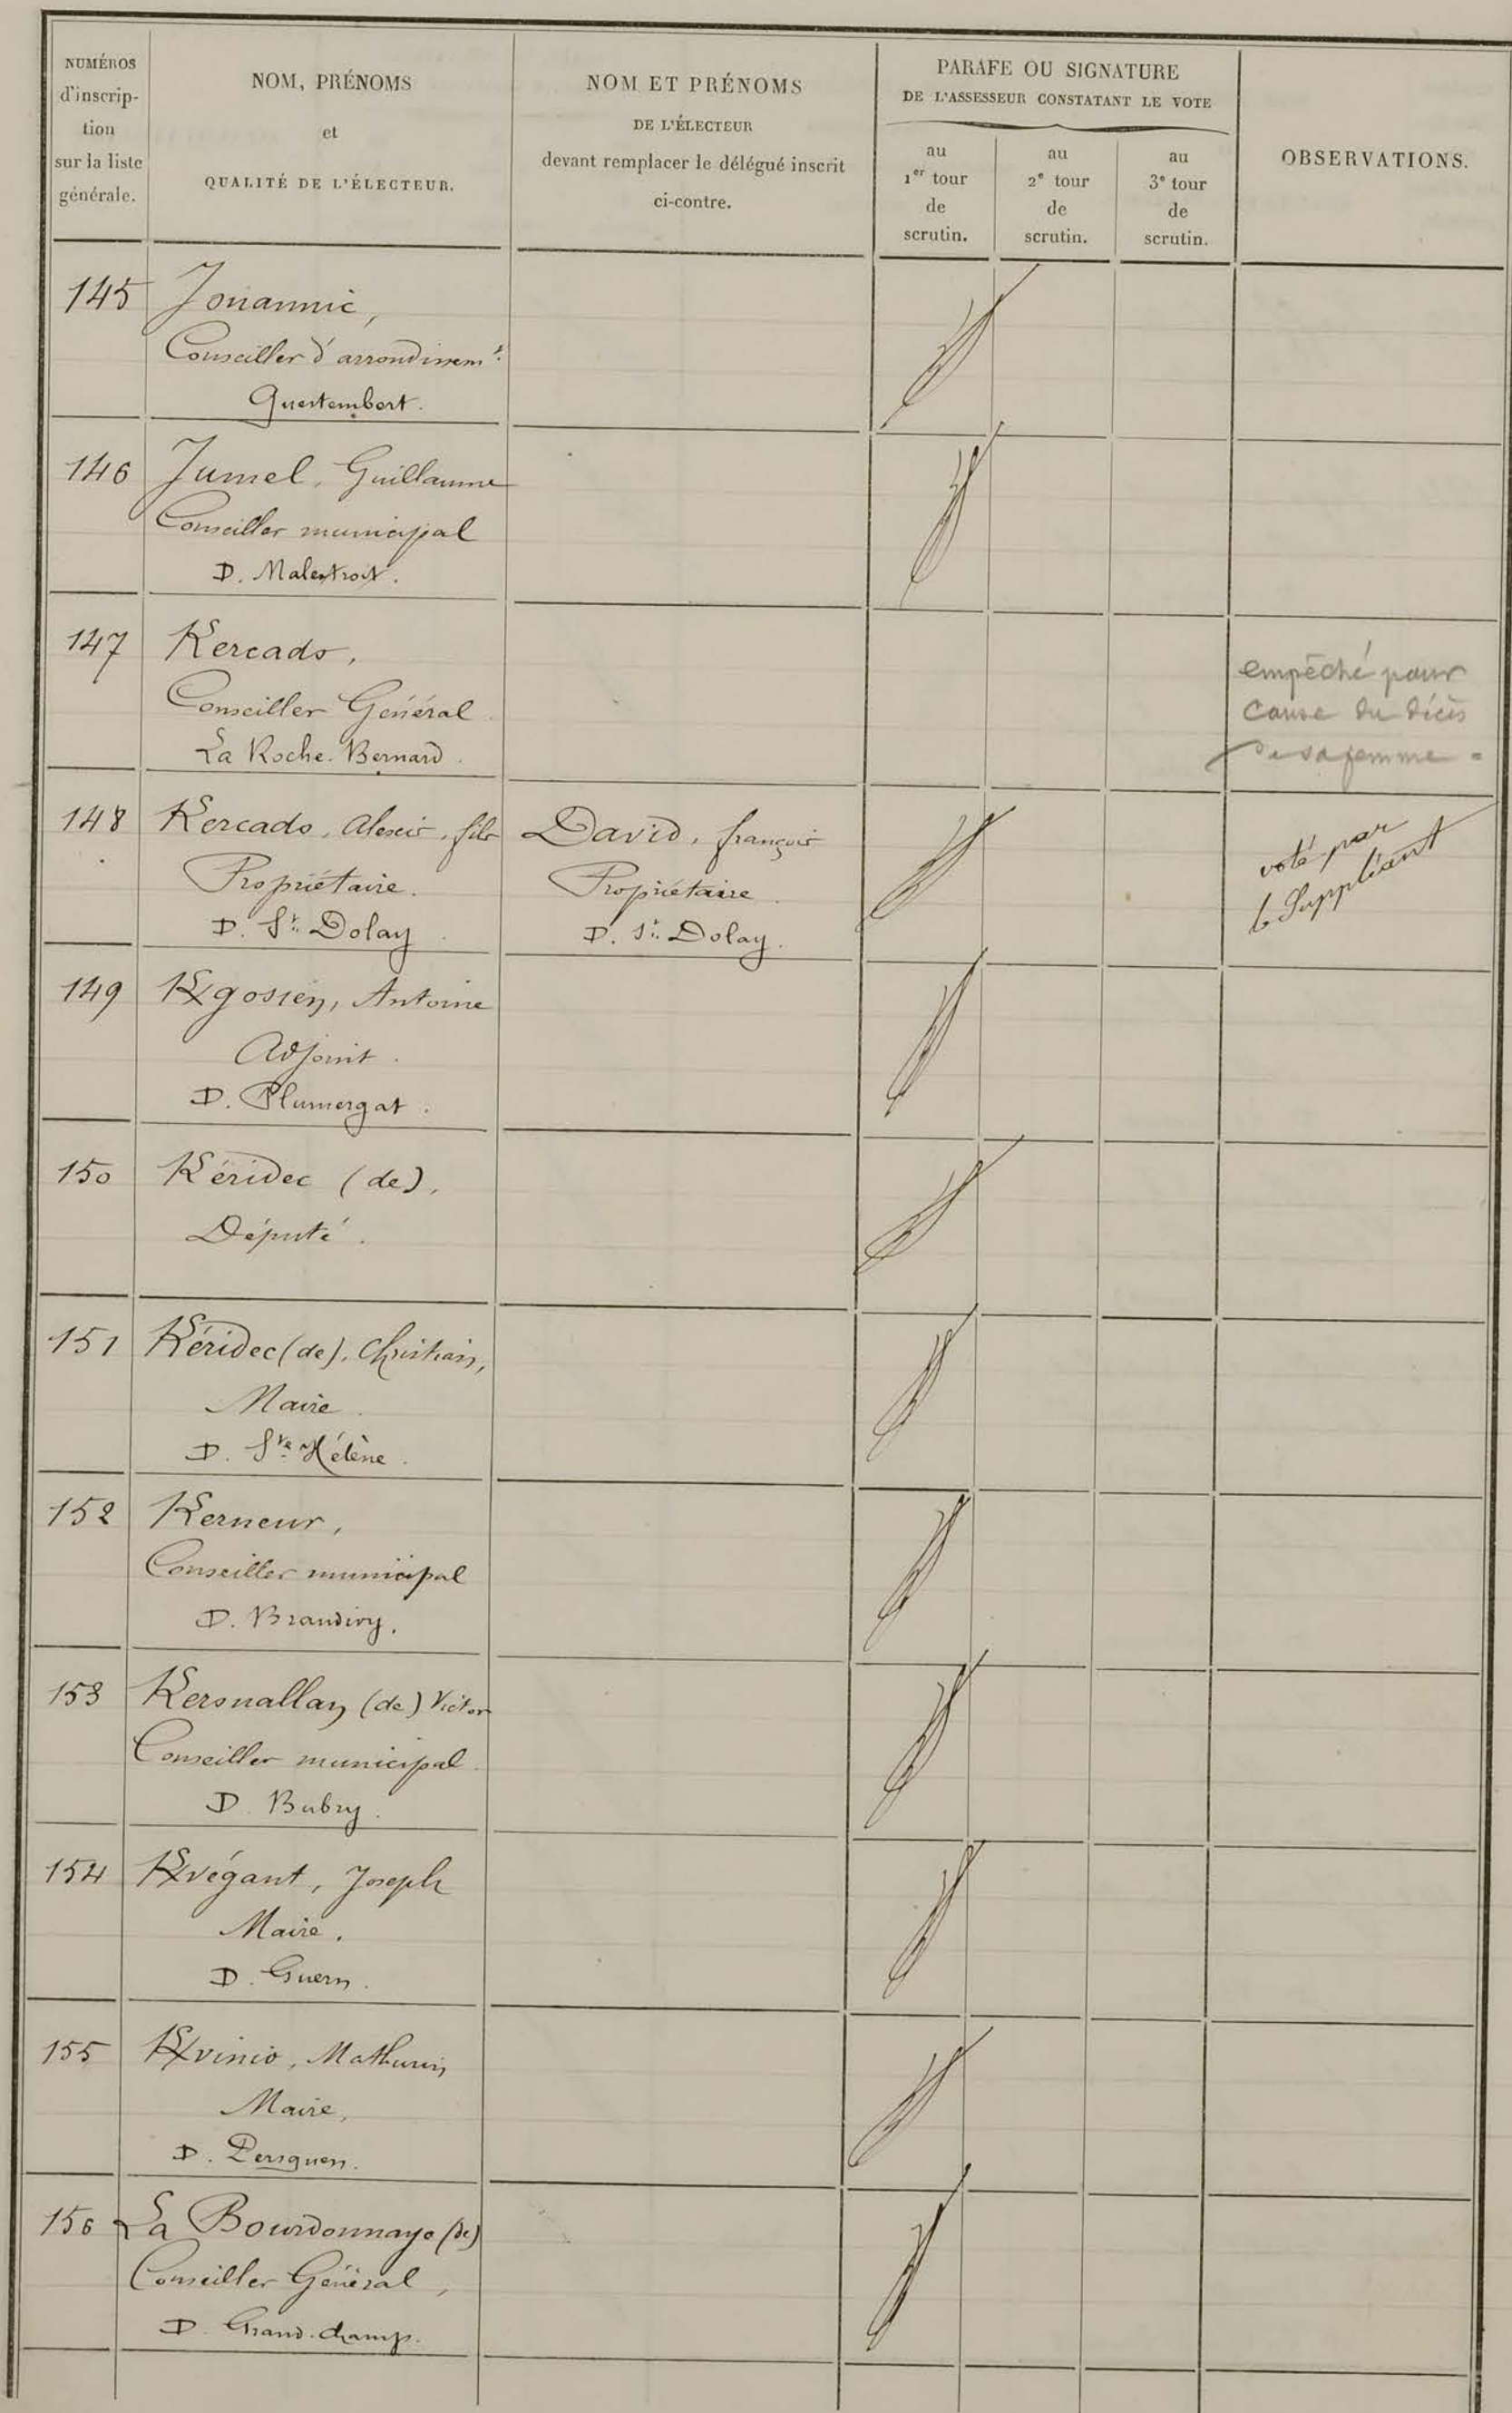 NUMÉROS
d'inscrip-
tion
sur la liste
générale.
NOM, PRÉNOMS
et
QUALITÉ DE L'ÉLECTEUR.
NOM ET PRÉNOMS
DE L'ÉLECTEUR
devant remplacer le délégué inscrit
ci-contre.
PARAFE OU SIGNATURE
DE L'ASSESSEUR CONSTATANT LE VOTE
au
1er tour
de
scrutin.
au
2e tour
de
scrutin.
au
3e tour
de
scrutin.
OBSERVATIONS.
145 Jouannic,
Conseiller d'arrondissemt.
Questembert.
146 Jumel, Guillaume
Conseiller municipal
D. Malestroit.
147 Kercado,
Conseiller Général
La Roche-Bernard.
empêché pour
cause du décès
de sa femme =
148 Kercado, Alexis, fils
Propriétaire.
D. St. Dolay
David, françois
Propriétaire.
D. St. Dolay.
voté par
le Suppléant
149 Kgosien, Antoine
Adjoint.
D. Plumergat.
150 Kéridec (de),
Député.
151 Kéridec (de), Christian,
Maire.
D. Ste Hélène.
152 Kerneur,
Conseiller municipal
D. Brandivy.
153 Kersuallan (de) Victor
Conseiller municipal
D. Bubry.
154 Kvégant, Joseph
Maire.
D. Guern.
155 Kvinio, Mathurin
Maire,
D. Persquen.
156 La Bourdonnaye (de)
Conseiller Général,
D. Grand-champ.